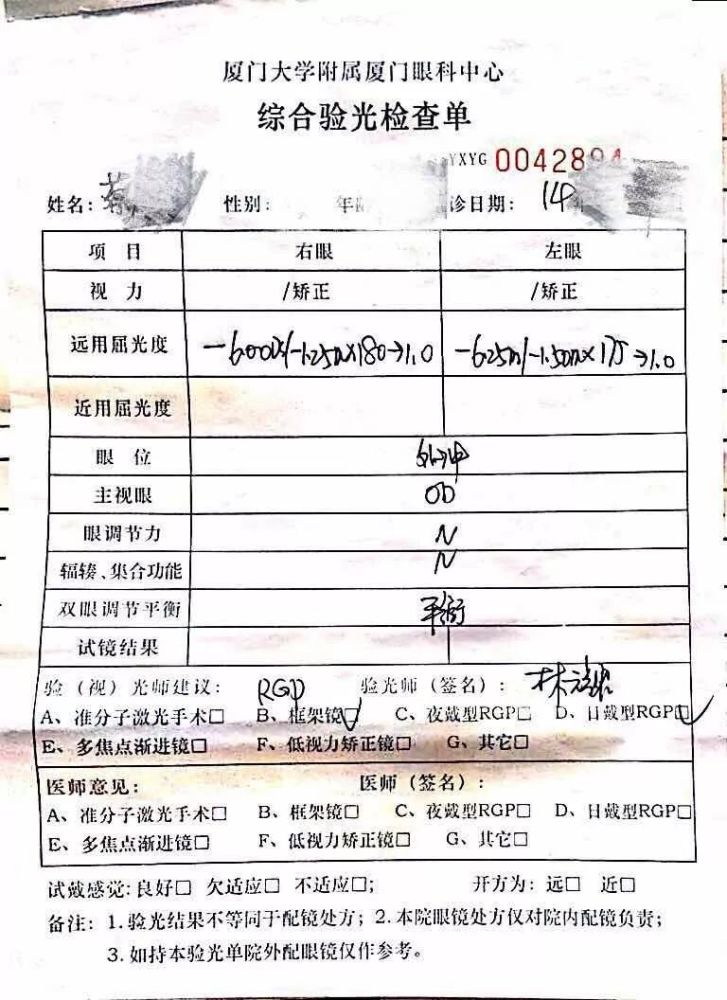 厦门大学附属厦门眼科中心
综合验光检查单
YXYG 0042894
姓名： 性别： 年 诊日期：
项 目 右眼 左眼
视 力 /矫正 /矫正
远用屈光度 -6.00DS/-1.25DC×180→1.0 -6.25DS/-1.50DC×175→1.0
近用屈光度
眼 位
主视眼 OD
眼调节力 N
辐辏、集合功能 N
双眼调节平衡 平衡
试镜结果
验（视）光师建议： RGP 验光师（签名）： 林
A、准分子激光手术□ B、框架镜☑ C、夜戴型RGP□ D、日戴型RGP☑
E、多焦点渐进镜□ F、低视力矫正镜□ G、其它□
医师意见： 医师（签名）：
A、准分子激光手术□ B、框架镜□ C、夜戴型RGP□ D、日戴型RGP□
E、多焦点渐进镜□ F、低视力矫正镜□ G、其它□
试戴感觉：良好□ 欠适应□ 不适应□； 开方为：远□ 近□
备注：1.验光结果不等同于配镜处方；2.本院眼镜处方仅对院内配镜负责；
3.如持本验光单院外配眼镜仅作参考。